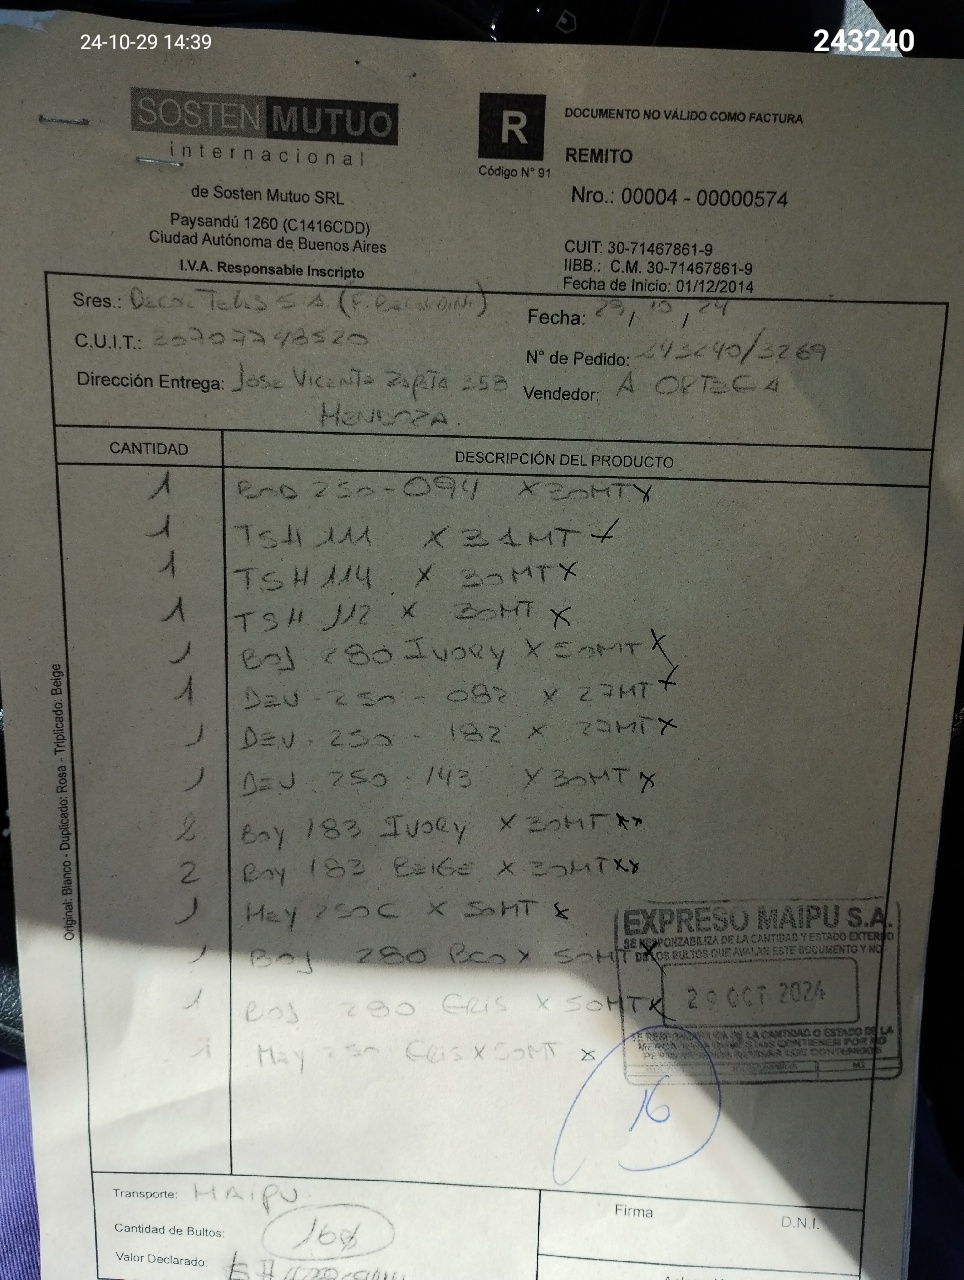 24-10-29 14:39
243240
SOSTEN MUTUO
internacional
de Sosten Mutuo SRL
Paysandú 1260 (C1416CDD)
Ciudad Autónoma de Buenos Aires
I.V.A. Responsable Inscripto
R
Código N° 91
DOCUMENTO NO VÁLIDO COMO FACTURA
REMITO
Nro.: 00004 - 00000574
CUIT: 30-71467861-9
IIBB.: C.M. 30-71467861-9
Fecha de Inicio: 01/12/2014
Sres.: Decor Telas S A
Fecha: 29/10/24
C.U.I.T.: 30707748520
N° de Pedido: 243240/3269
Dirección Entrega: Jose Vicente Zapata 253
MENDOZA.
Vendedor: A ORTEGA
CANTIDAD DESCRIPCIÓN DEL PRODUCTO
1 250-094 X 30MT X
1 TSH 111 X 31MT X
1 TSH 114 X 30MT X
1 TSH 112 X 30MT X
1 280 IVORY X 50MT X
1 DEV - 250 - 082 X 27MT X
1 DEV - 250 - 182 X 27MT X
1 DEV. 250 - 143 X 30MT X
2 Bay 183 IVORY X 30MT XX
2 Bay 183 BEIGE X 30MT XX
1 Hey 250C X 50MT X
1 280 BCO X 50MT X
1 280 GRIS X 50MT X
1 Hey 250 GRIS X 50MT X
Original: Blanco - Duplicado: Rosa - Triplicado: Beige
EXPRESO MAIPU S.A.
SE RESPONZABILIZA DE LA CANTIDAD Y ESTADO EXTERNO
DE LOS BULTOS QUE AVALAN ESTE DOCUMENTO Y NO
29 OCT 2024
16
Transporte: MAIPU.
Cantidad de Bultos: 16
Valor Declarado:
Firma
D.N.I.